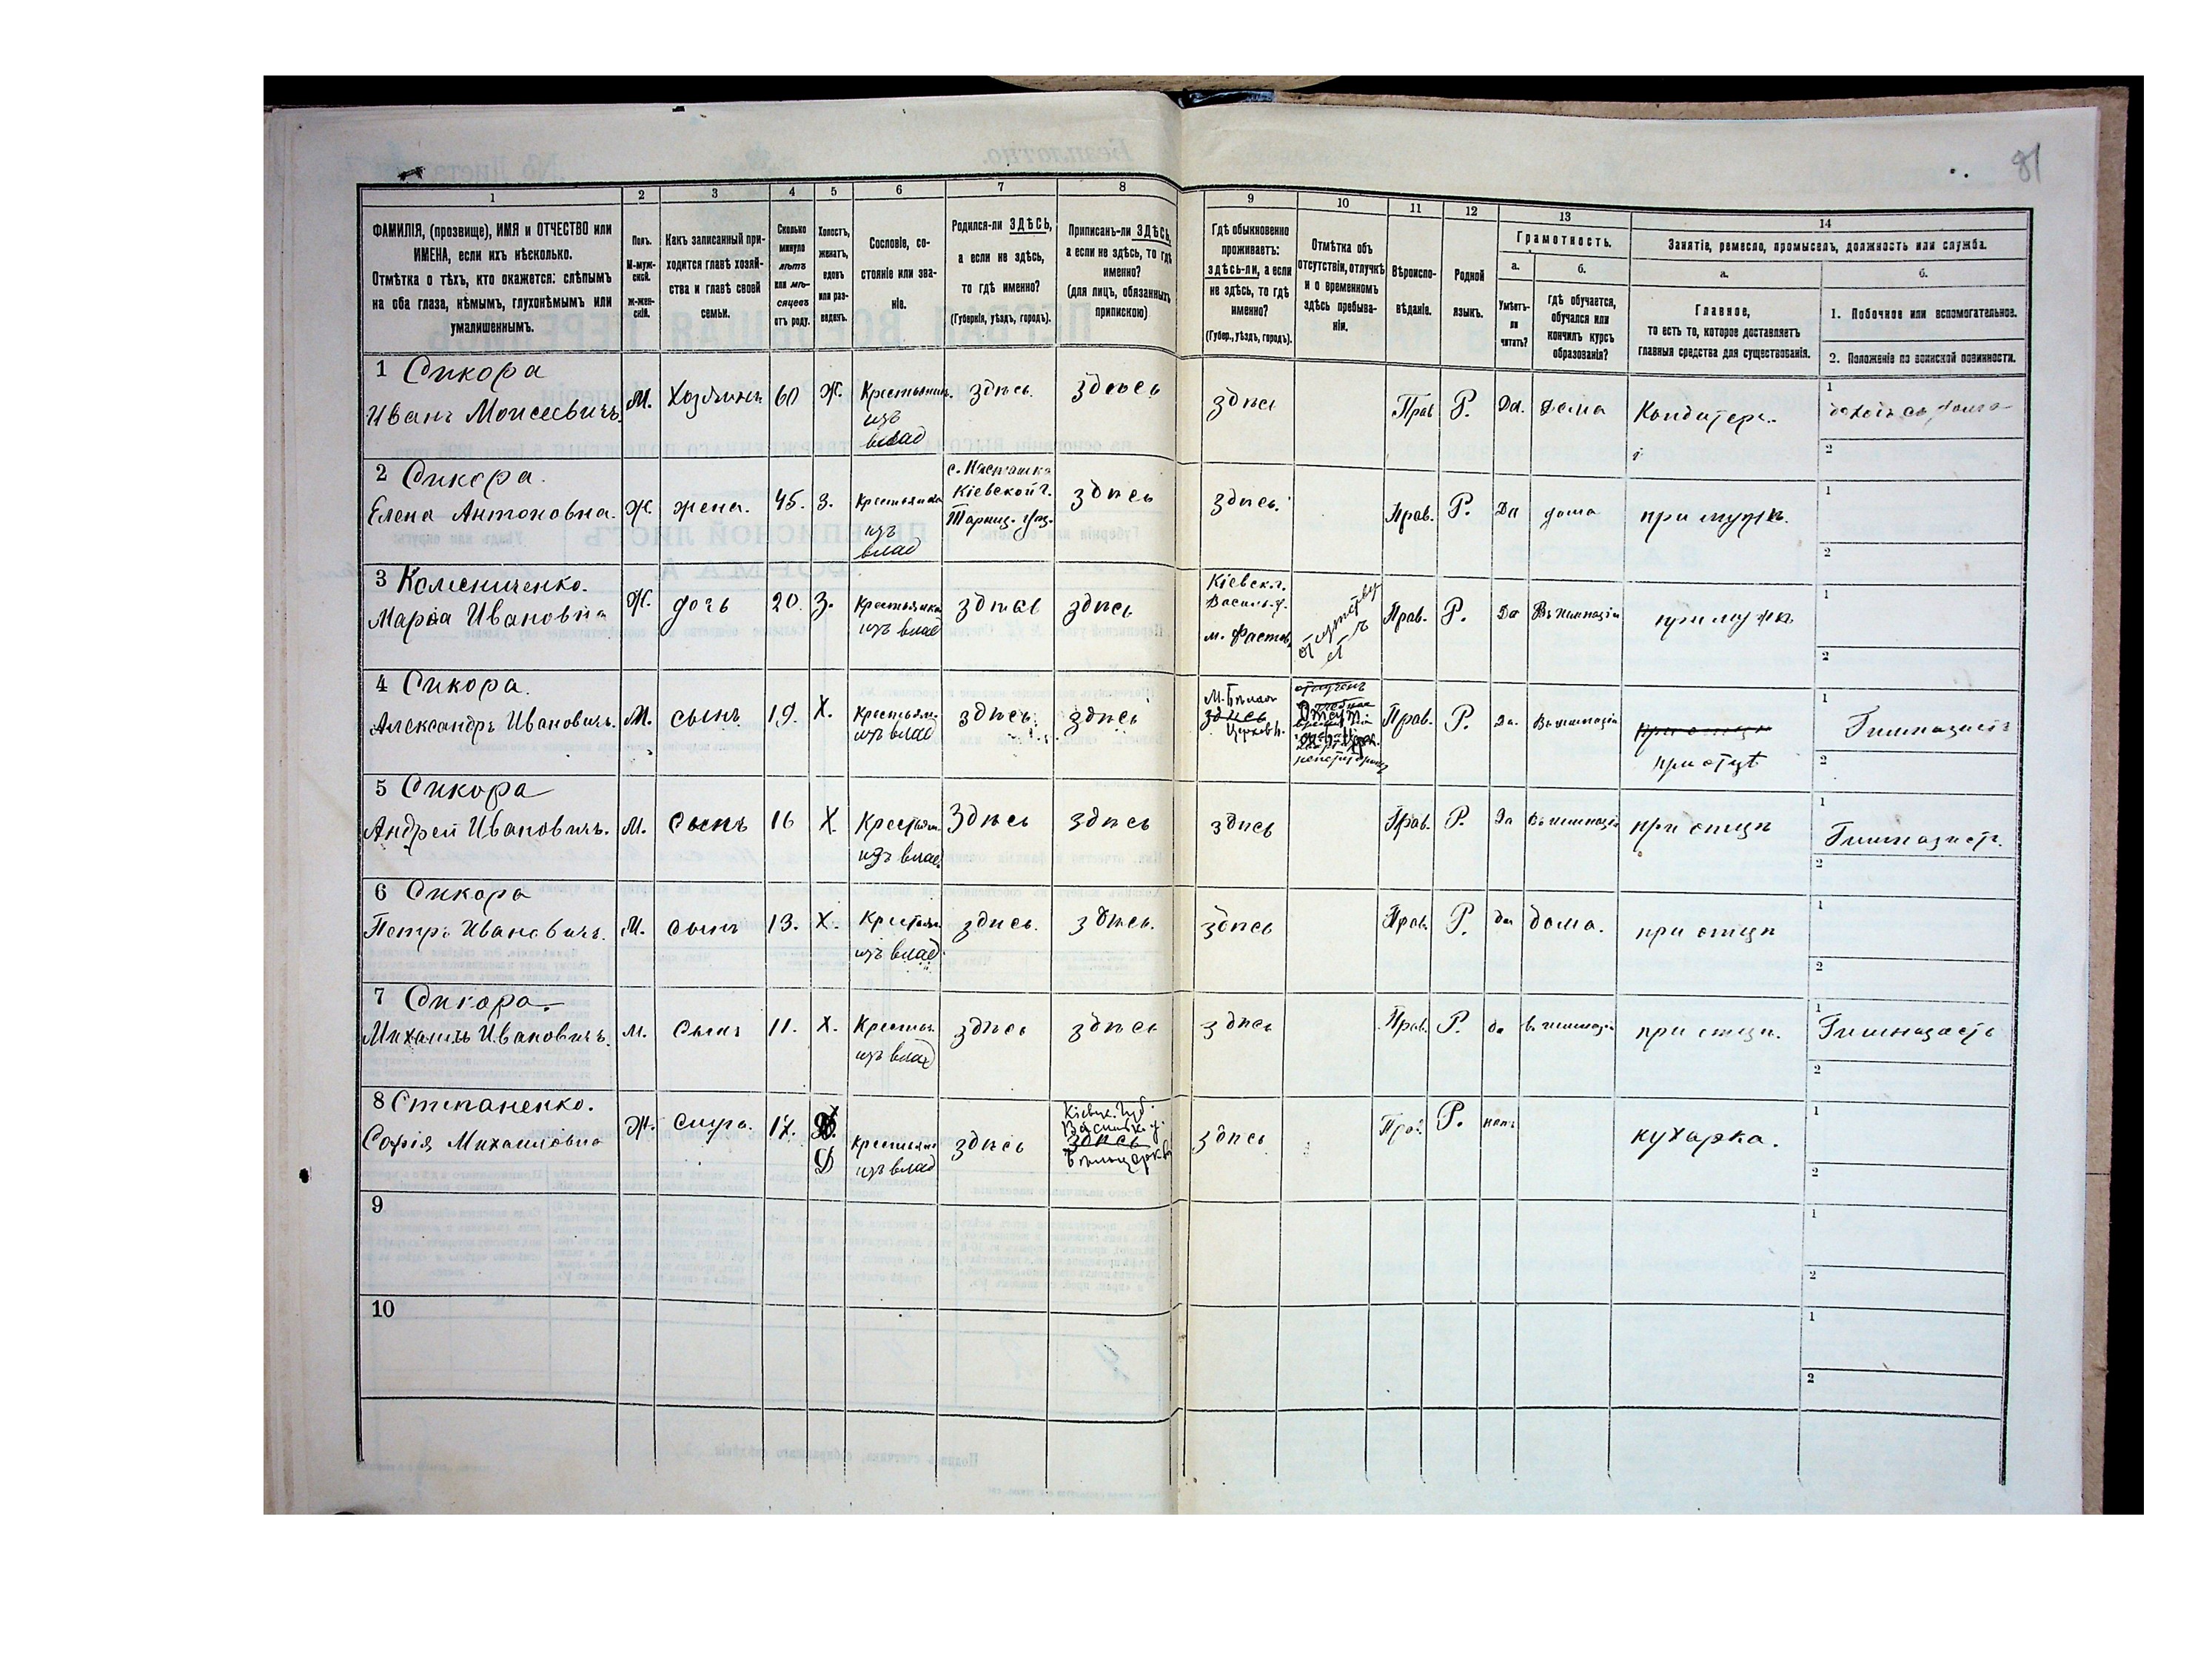 81
1
2
3
4
5
6
7
8
9
10
11
12
13
14
ФАМИЛІЯ, (прозвище), ИМЯ и ОТЧЕСТВО или
ИМЕНА, если ихъ нѣсколько.
Отмѣтка о тѣхъ, кто окажется: слѣпымъ
на оба глаза, нѣмымъ, глухонѣмымъ или
умалишеннымъ.
Полъ.
М-муж-
ской.
ж-жен-
скій.
Какъ записанный при-
ходится главѣ хозяй-
ства и главѣ своей
семьи.
Сколько
минуло
лѣтъ
или мѣ-
сяцевъ
отъ роду.
Холостъ,
женатъ,
вдовъ
или раз-
веденъ.
Сословіе, со-
стояніе или зва-
ніе.
Родился-ли ЗДѢСЬ,
а если не здѣсь,
то гдѣ именно?
(Губернія, уѣздъ, городъ).
Приписанъ-ли ЗДѢСЬ,
а если не здѣсь, то гдѣ
именно?
(для лицъ, обязанныхъ
припискою)
Гдѣ обыкновенно
проживаетъ:
здѣсь-ли, а если
не здѣсь, то гдѣ
именно?
(Губер., уѣздъ, городъ).
Отмѣтка объ
отсутствіи, отлучкѣ
и о временномъ
здѣсь пребыва-
ніи.
Вѣроиспо-
вѣданіе.
Родной
языкъ.
Грамотность.
а.
б.
Умѣетъ-
ли
читать?
гдѣ обучается,
обучался или
кончилъ курсъ
образованія?
Занятіе, ремесло, промыселъ, должность или служба.
а.
б.
Главное,
то есть то, которое доставляетъ
главныя средства для существованія.
1. Побочное или вспомогательное.
2. Положеніе по воинской повинности.
1 Сикора
Иванъ Моисеевичъ.
М.
Хозяинъ
60
Ж.
Крестьянинъ.
изъ
влад
здѣсь.
здѣсь
здѣсь
Прав
Р.
Да.
дома
Кондитеръ.
1
2
2 Сикора.
Елена Антоновна.
Ж
жена.
45.
З.
Крестьянка
изъ
влад
Кіевской г.
здѣсь
здѣсь.
Прав.
Р.
Да
дома
при мужѣ.
1
2
3 Колесниченко.
Марія Ивановна
Ж.
дочь
20.
З.
Крестьянка
изъ влад
здѣсь
здѣсь
Кіевск. г.
Васильк. у.
м. Фастов
Прав.
Р.
Да
Въ гимназіи
при мужѣ
1
2
4 Сикора.
Александръ Ивановичъ.
М.
сынъ
19.
Х.
Крестьян.
изъ влад
здѣсь.
здѣсь
здѣсь
Прав.
Р.
Да.
Въ гимназіи
при отцѣ
при отцѣ
1
Гимназистъ
2
5 Сикора
Андрей Ивановичъ.
М.
Сынъ
16
Х.
Крестьян.
изъ влад.
Здѣсь
здѣсь
здѣсь
Прав.
Р.
Да
Въ гимназіи
при отцѣ
1
Гимназистъ.
2
6 Сикора
Петръ Ивановичъ.
М.
сынъ
13.
Х.
Крестьян.
изъ влад
здѣсь.
здѣсь.
здѣсь
Прав.
Р.
да
дома.
при отцѣ
1
2
7 Сикора.
Михаилъ Ивановичъ.
М.
Сынъ
11.
Х.
Крестьян.
изъ влад
здѣсь
здѣсь
здѣсь
Прав.
Р.
да
въ гимназіи
при отцѣ.
1
Гимназистъ
2
8 Степаненко.
Софія Михаиловна
Ж.
Слуга.
17.
Д
крестьянк
изъ влад
здѣсь
Кіевск. Губ.
Васильк. у.
здѣсь
здѣсь
Прав.
Р.
нѣтъ
кухарка.
1
2
9
1
2
10
1
2